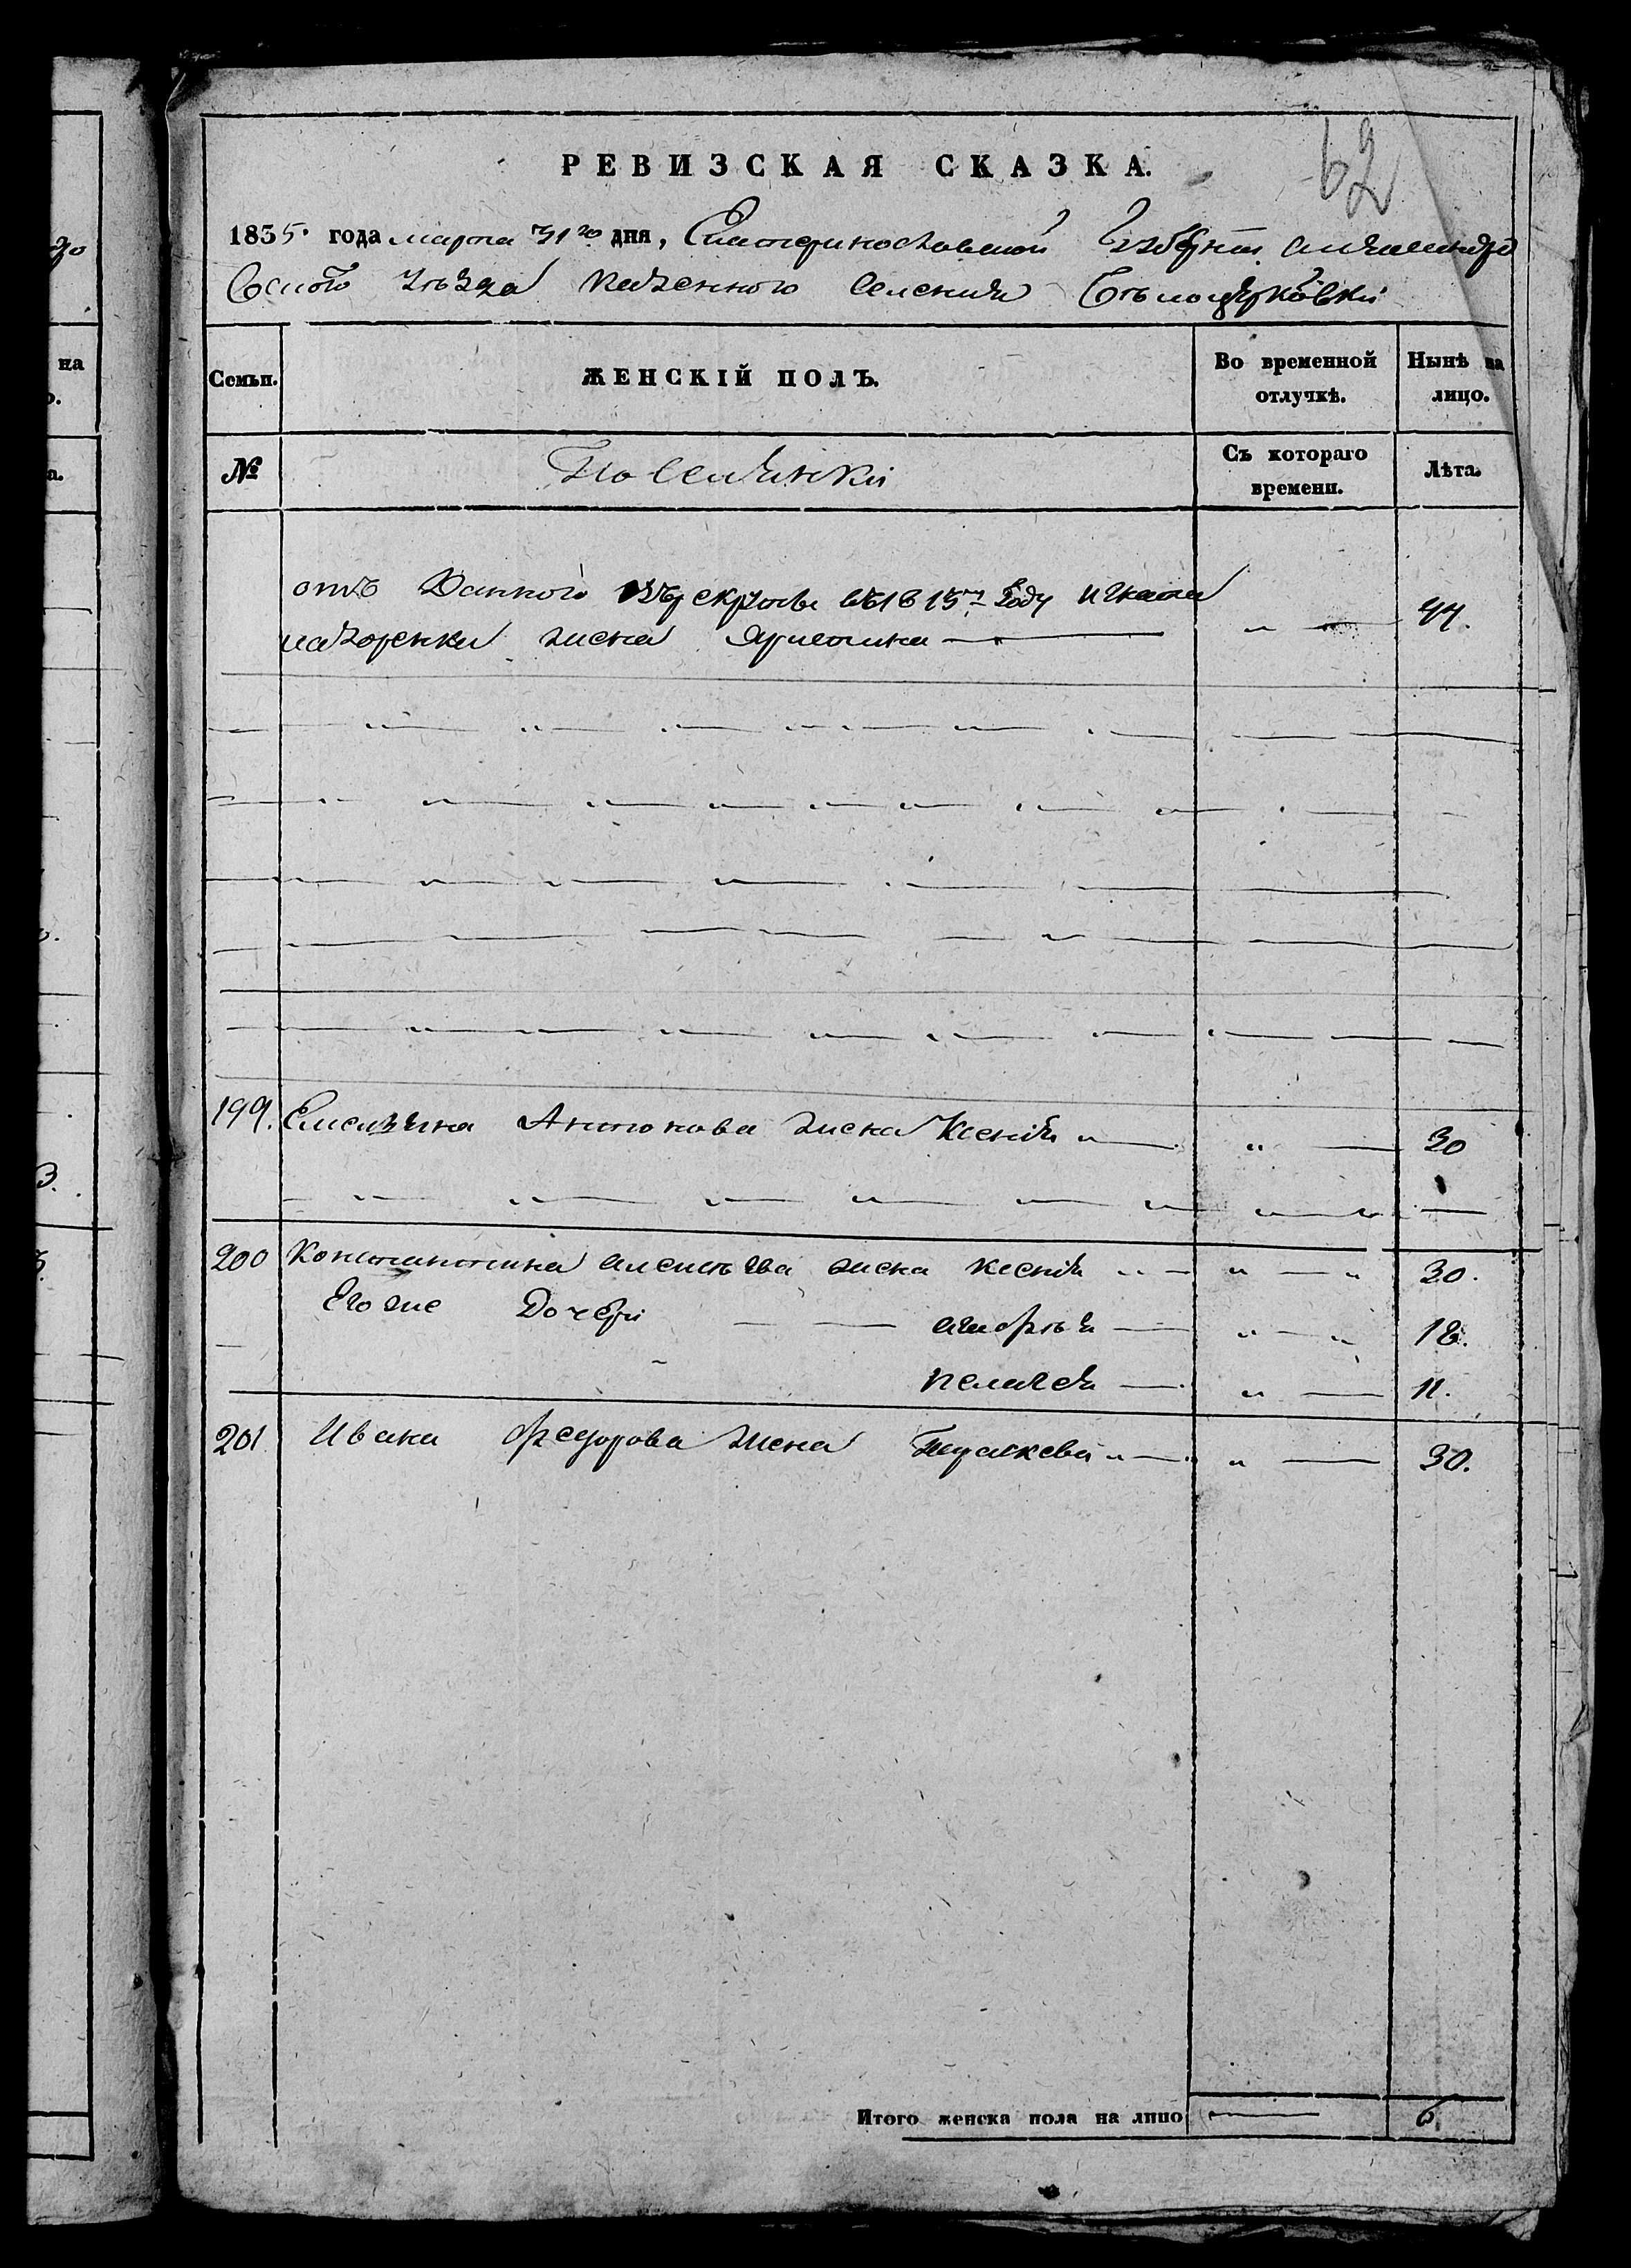 62
РЕВИЗСКАЯ СКАЗКА.
1835 года марта 31го дня, Екатеринославской Губерніи Александро
вскаго уѣзда казенного селенія Бѣлоцерковки
Семьи.
ЖЕНСКІЙ ПОЛЪ.
Во временной отлучкѣ.
Нынѣ на лицо.
№
Поселянки
Съ котораго времени.
Лѣта.
отъ Данного въ рекруты въ 1815м году Игната
назоренки жена 44.
199. Емельяна Антонова жена Ксенія " — " — 30
200 Константина Алексѣева жена Ксенія " — " — " 30.
Его же Дочери — — Марфѣя — " — " 18.
Пелагея — " — 11.
201 Ивана Федорова жена Параскева " — " — 30.
Итого женска пола на лицо — 6.
на
о.
а.